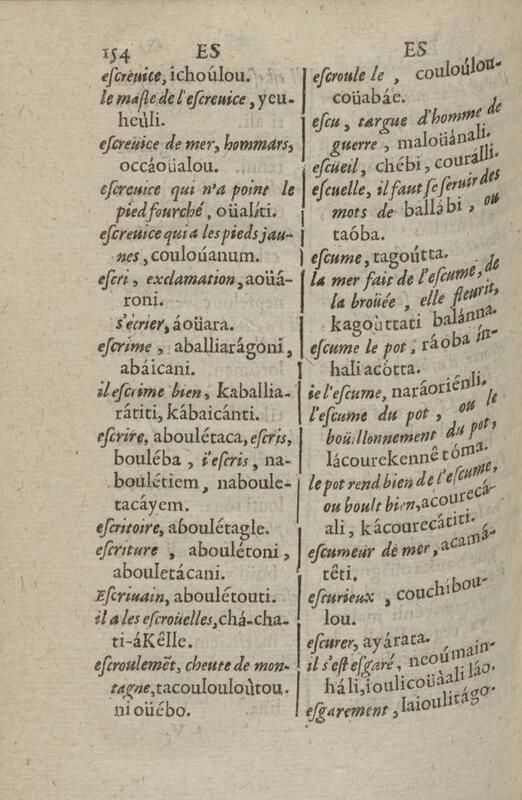 154 ES
eſcreuice, ichoúlou.
le maſle de l'eſcreuice, yeu-
heùli.
eſcreuice de mer, hommars,
occáoüalou.
eſcreuice qui n'a point le
pied fourché, oüalíti.
eſcreuice qui a les pieds jau-
nes, coulouánum.
eſcri, exclamation, aoüá-
roni.
s'écrier, áoüara.
eſcrime, aballiarágoni,
abáicani.
il eſcrime bien, kaballia-
rátiti, kábaicánti.
eſcrire, aboulétaca, eſcris,
bouléba, i'eſcris, na-
boulétiem, naboule-
tacáyem.
eſcritoire, aboulétagle.
eſcriture, aboulétoni,
abouletácani.
Eſcriuain, aboulétouti.
il a les eſcroüelles, chá-cha-
ti-áKêlle.
eſcroulemēt, cheute de mon-
tagne, tacoulouloùtou.
ni oüébo.
ES
eſcroule le, couloúlou-
coüabáe.
eſcu, targue d'homme de
guerre, maloüánali.
eſcüeil, chébi, couralli.
eſcuelle, il faut ſe ſeruir des
mots de ballábi, ou
taóba.
eſcume, tagoútta.
la mer fait de l'eſcume, de
la broüée, elle fleurit,
kagoùttati balánna.
eſcume le pot, ráoba ín-
hali acótta.
ie l'eſcume, naráoriénli.
l'eſcume du pot, ou le
boüillonnement du pot,
lácourekennê tóma.
le pot rend bien de l'eſcume,
ou boult bien, acourecá-
ali, kácourecátiti.
eſcumeur de mer, acamá-
têti.
eſcurieux, couchíbou-
lou.
eſcurer, ayárata.
il s'eſt eſgaré, neoúmain-
háli, ioulicoüàali láo.
eſgarement, Iaioulitágo-